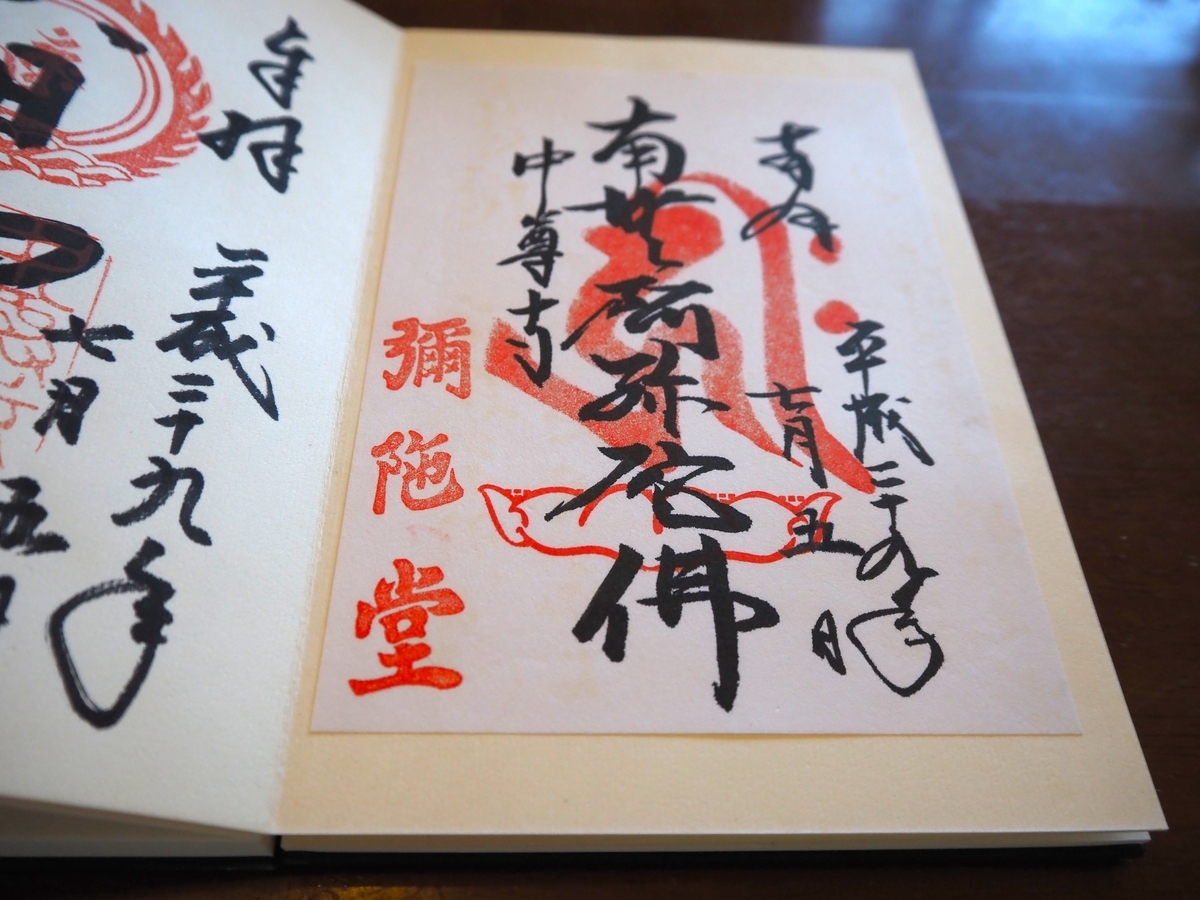 奉拝
平成二十九年
七月五日
南無阿弥陀佛
中尊寺
彌陀堂
奉拝
平成二十九年
七月
五日